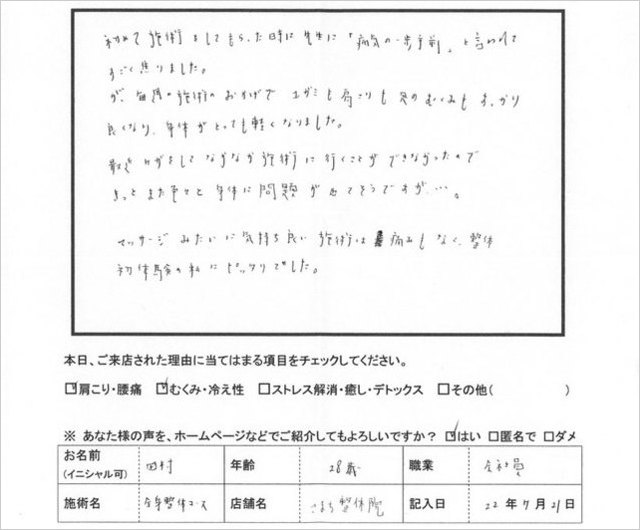 初めて施術をしてもらった時に先生に「病気の一歩手前」と言われて
すごく焦りました。
が、毎週の施術のおかげで ユガミも肩こりも足のむくみもすっかり
良くなり、身体がとっても軽くなりました。
最近ケガをしてなかなか施術に行くことができなかったので
きっとまた色々と身体に問題が出てそうですが…。
マッサージみたいに気持ち良い施術は痛みもなく、整体
初体験の私にピッタリでした。
本日、ご来店された理由に当てはまる項目をチェックしてください。
☑肩こり・腰痛 ☑むくみ・冷え性 □ストレス解消・癒し・デトックス □その他( )
※ あなた様の声を、ホームページなどでご紹介してもよろしいですか? ☑はい □匿名で □ダメ
お名前 田村 年齢 28歳 職業 会社員
(イニシャル可)
施術名 全身整体コース 店舗名 こまち整体院 記入日 22年7月21日